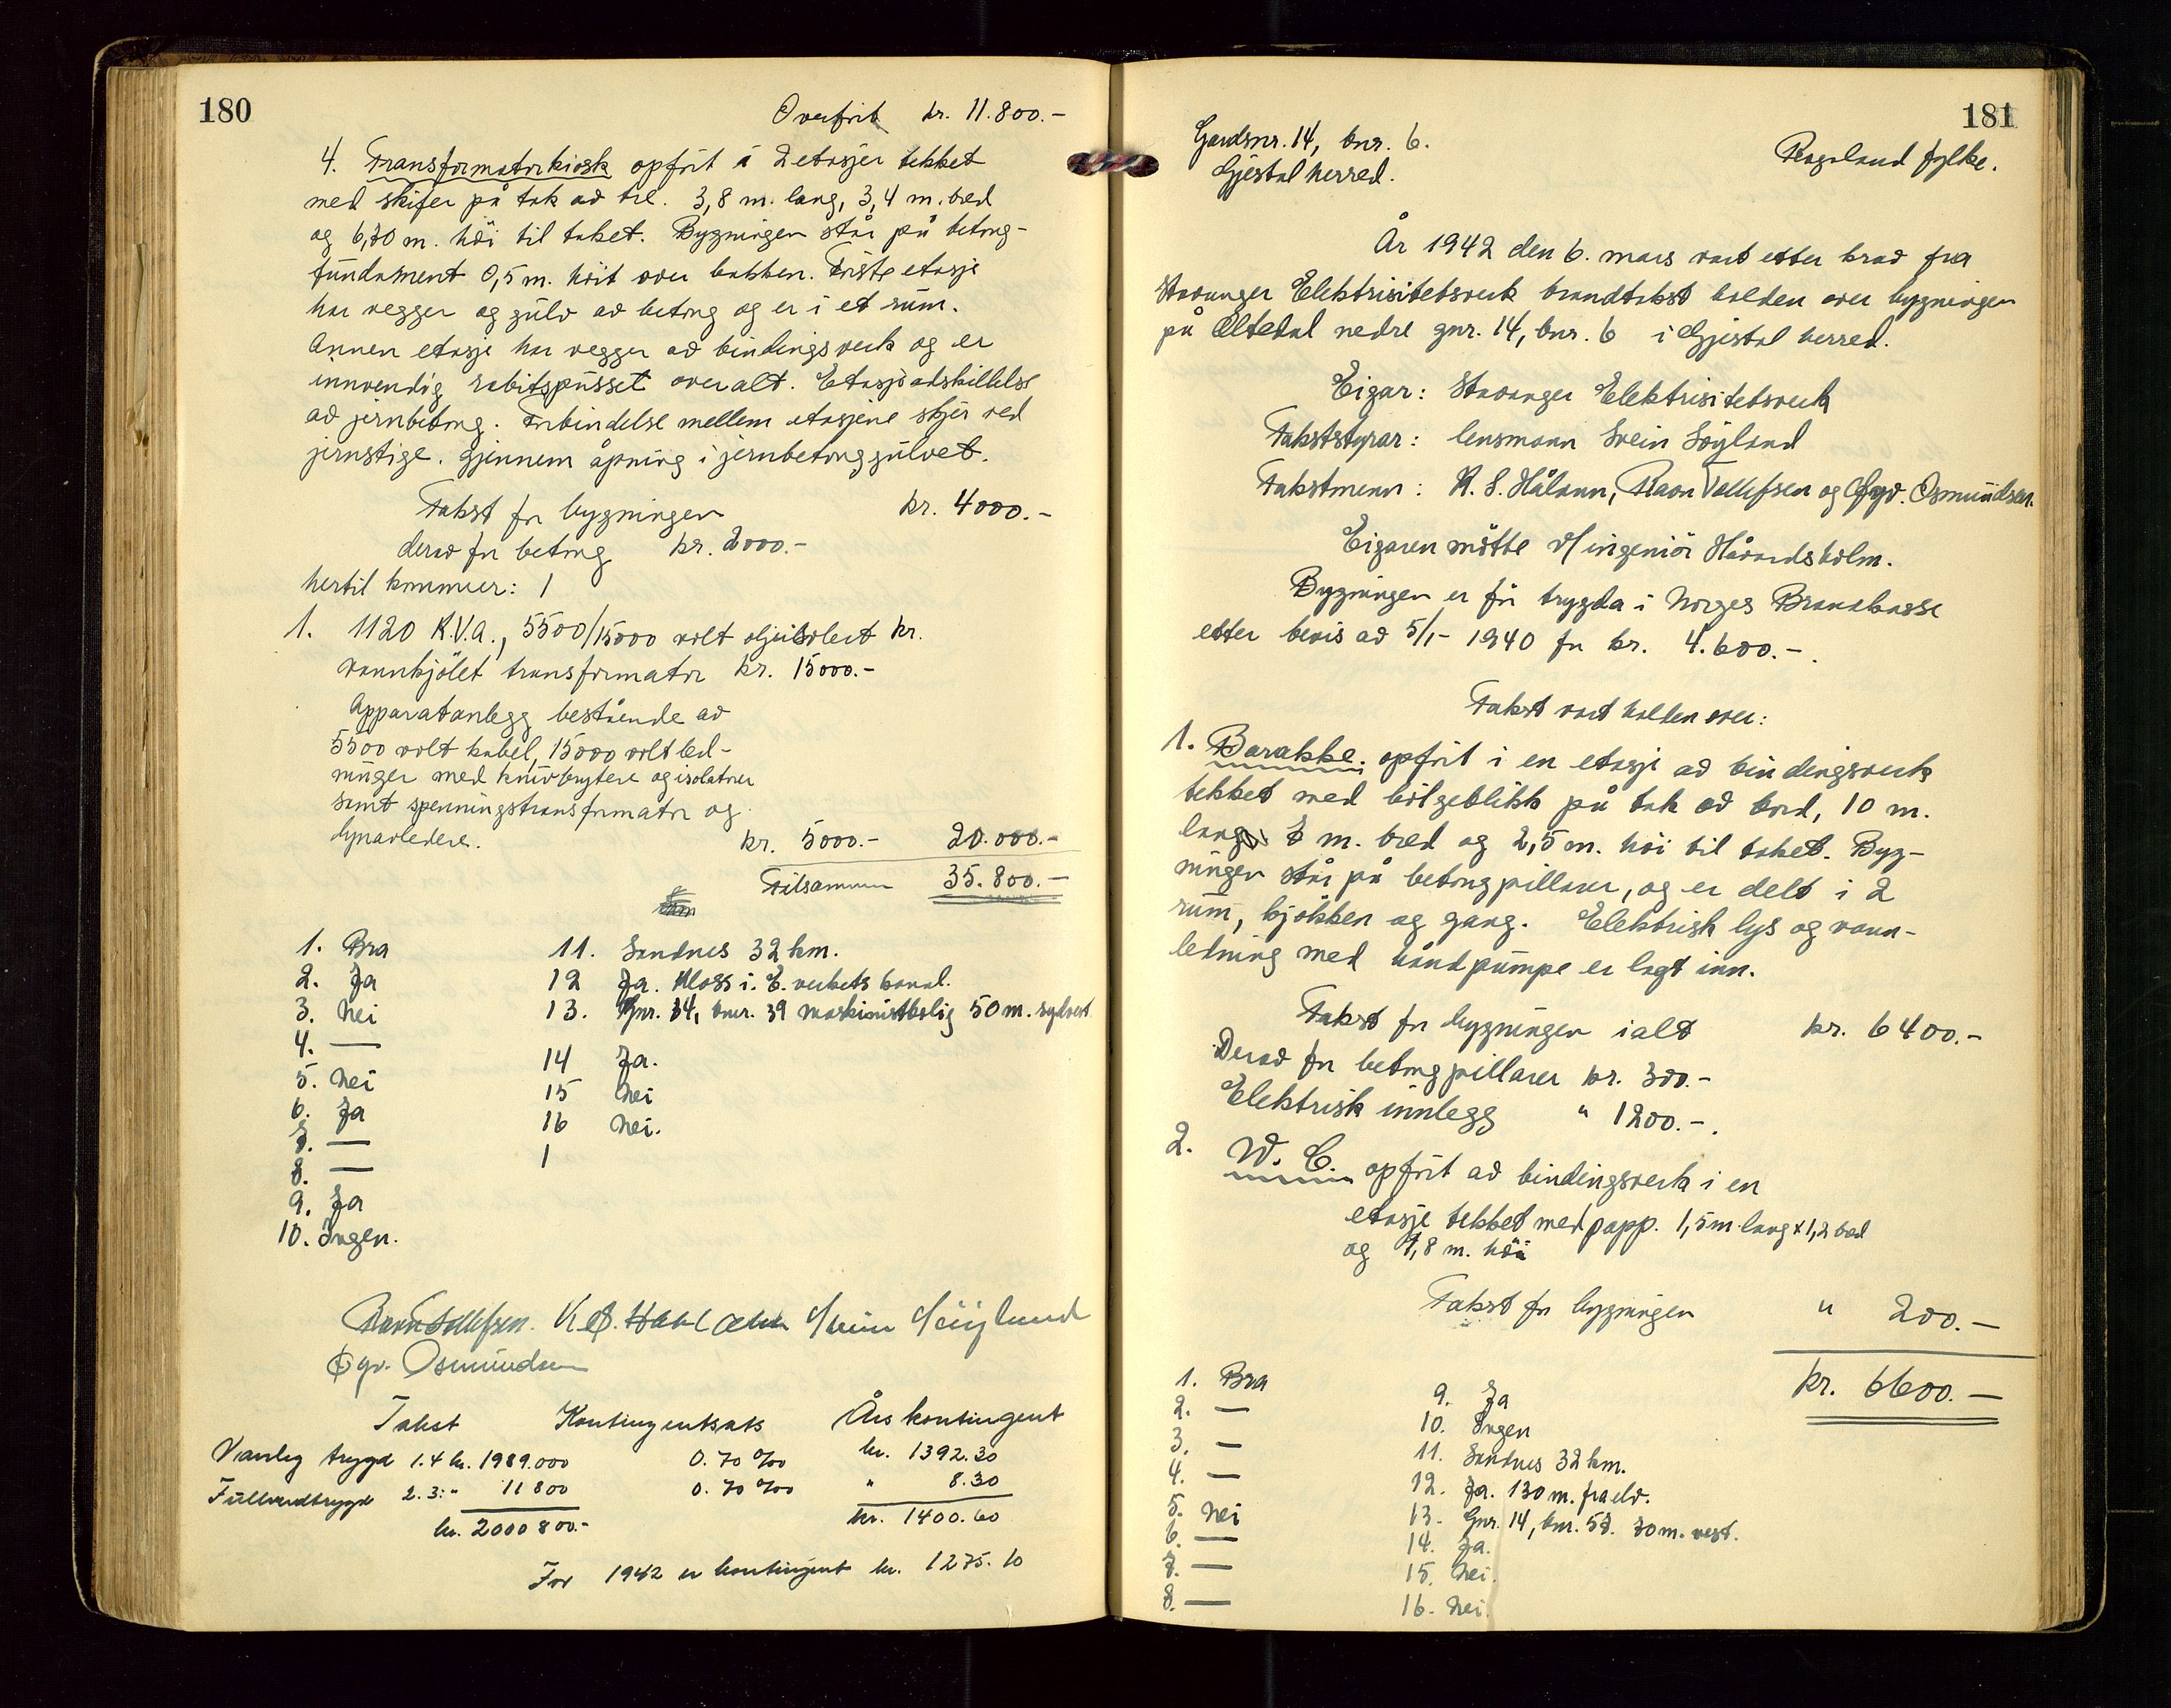 180
Overført kr. 11.800.-
4. Transformatorkiosk opført i 2 etasjer tekket
med skifer på tak av tre. 3,8 m. lang, 3,4 m. bred
og 6,70 m. höi til taket. Bygningen står på betong-
fundament 0,5 m. höit over bakken. Förste etasje
har vegger og gulv av betong og er i et rum.
Annen etasje har vegger av bindingsverk og er
innvendig rabitspusset overalt. Etasjeadskillelse
av jernbetong. Forbindelse mellem etasjene skjer ved
jernstige. gjennem åpning i jernbetonggulvet.
Takst for bygningen kr. 4000.-
derav for betong kr. 2000.-
hertil kommer:
1. 1120 K.V.A., 5500/15000 volt oljeisolert kr.
vannkjölet transformator kr. 15000.-
Apparatanlegg bestående av
5500 volt kabel, 15000 volt led-
ninger med knivbrytere og isolatorer
samt spenningstransformator og
lynavledere. kr. 5000.- 20.000.-
Tilsammen 35.800.-
1. Bra 11. Sandnes 32 km.
2. Ja 12 Ja. Kloss i E. verkets kanal.
3. Nei 13. Gnr. 34, bnr. 39 maskinistbolig 50 m. sydvest
4. — 14 Ja.
5. Nei 15 Nei
6. Ja 16 Nei.
7. —
8. —
9. Ja
10. Ingen.
Ravn Tollefsen. K S. Håland Svein Söyland
Gyv. Osmundsen
Takst Kontingentsats Års kontingent
Vanleg trygd 1.4 kr. 1989.000 0.70 ‰ kr. 1392.30
Fullverdtrygd 2.3: " 11800 0.70 ‰ " 8.30
kr. 2000800.- kr. 1400.60
For 1942 er kontingent kr. 1275.10
181
Gardsnr. 14, bnr. 6.
Gjestal herred. Rogaland fylke.
År 1942 den 6. mars vart etter krav fra
Stavanger Elektrisitetsverk brandtakst halden over bygningen
på Oltedal nedre gnr. 14, bnr. 6 i Gjestal herred.
Eigar: Stavanger Elektrisitetsverk
Takststyrar: lensmann Svein Söyland
Takstmenn: K. S. Håland, Ravn Tollefsen og Gyv. Osmundsen.
Eigaren mötte v/ ingeniör Håvardsholm.
Bygningen er för trygda i Norges Brannkasse
etter bevis av 5/1- 1940 for kr. 4.600.-.
Takst vart halden over:
1. Barakke. opfört i en etasje av bindingsverk
tekket med bölgeblikk på tak av bord, 10 m.
lang 7 m. bred og 2,5 m. höi til taket. Byg-
ningen står på betongpillarer, og er delt i 2
rum, kjökken og gang. Elektrisk lys og vann-
ledning med håndpumpe er lagt inn.
Takst for bygningen ialt kr. 6400.-
Derav for betongpillarer kr. 300.-
Elektrisk innlegg " 1200.-.
2. W. C. opfört av bindingsverk i en
etasje tekket med papp. 1,5 m. lang x 1,2 bred
og 1,8 m. höi
Takst for bygningen " 200.—
kr. 6600.—
1. Bra 9. Ja
2. — 10. Ingen
3. — 11. Sandnes 32 km.
4. — 12. Ja. 130 m. fra elv.
5. Nei 13. Gnr. 14, bnr. 57. 70 m. vest.
6. — 14. Ja.
7. — 15. Nei.
8. — 16. Nei.